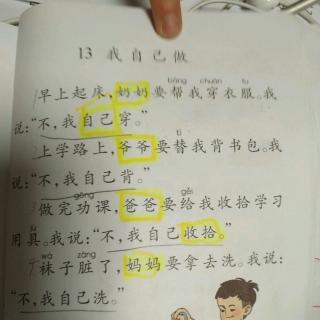 13 我自己做
bāng chuān fu
1早上起床，奶奶要帮我穿衣服。我
说：“不，我自己穿。”
tì
2上学路上，爷爷要替我背书包。我
说：“不，我自己背。”
gōng gěi
3做完功课，爸爸要给我收拾学习
用具。我说：“不，我自己收拾。”
wà zāng
4袜子脏了，妈妈要拿去洗。我说：
“不，我自己洗。”